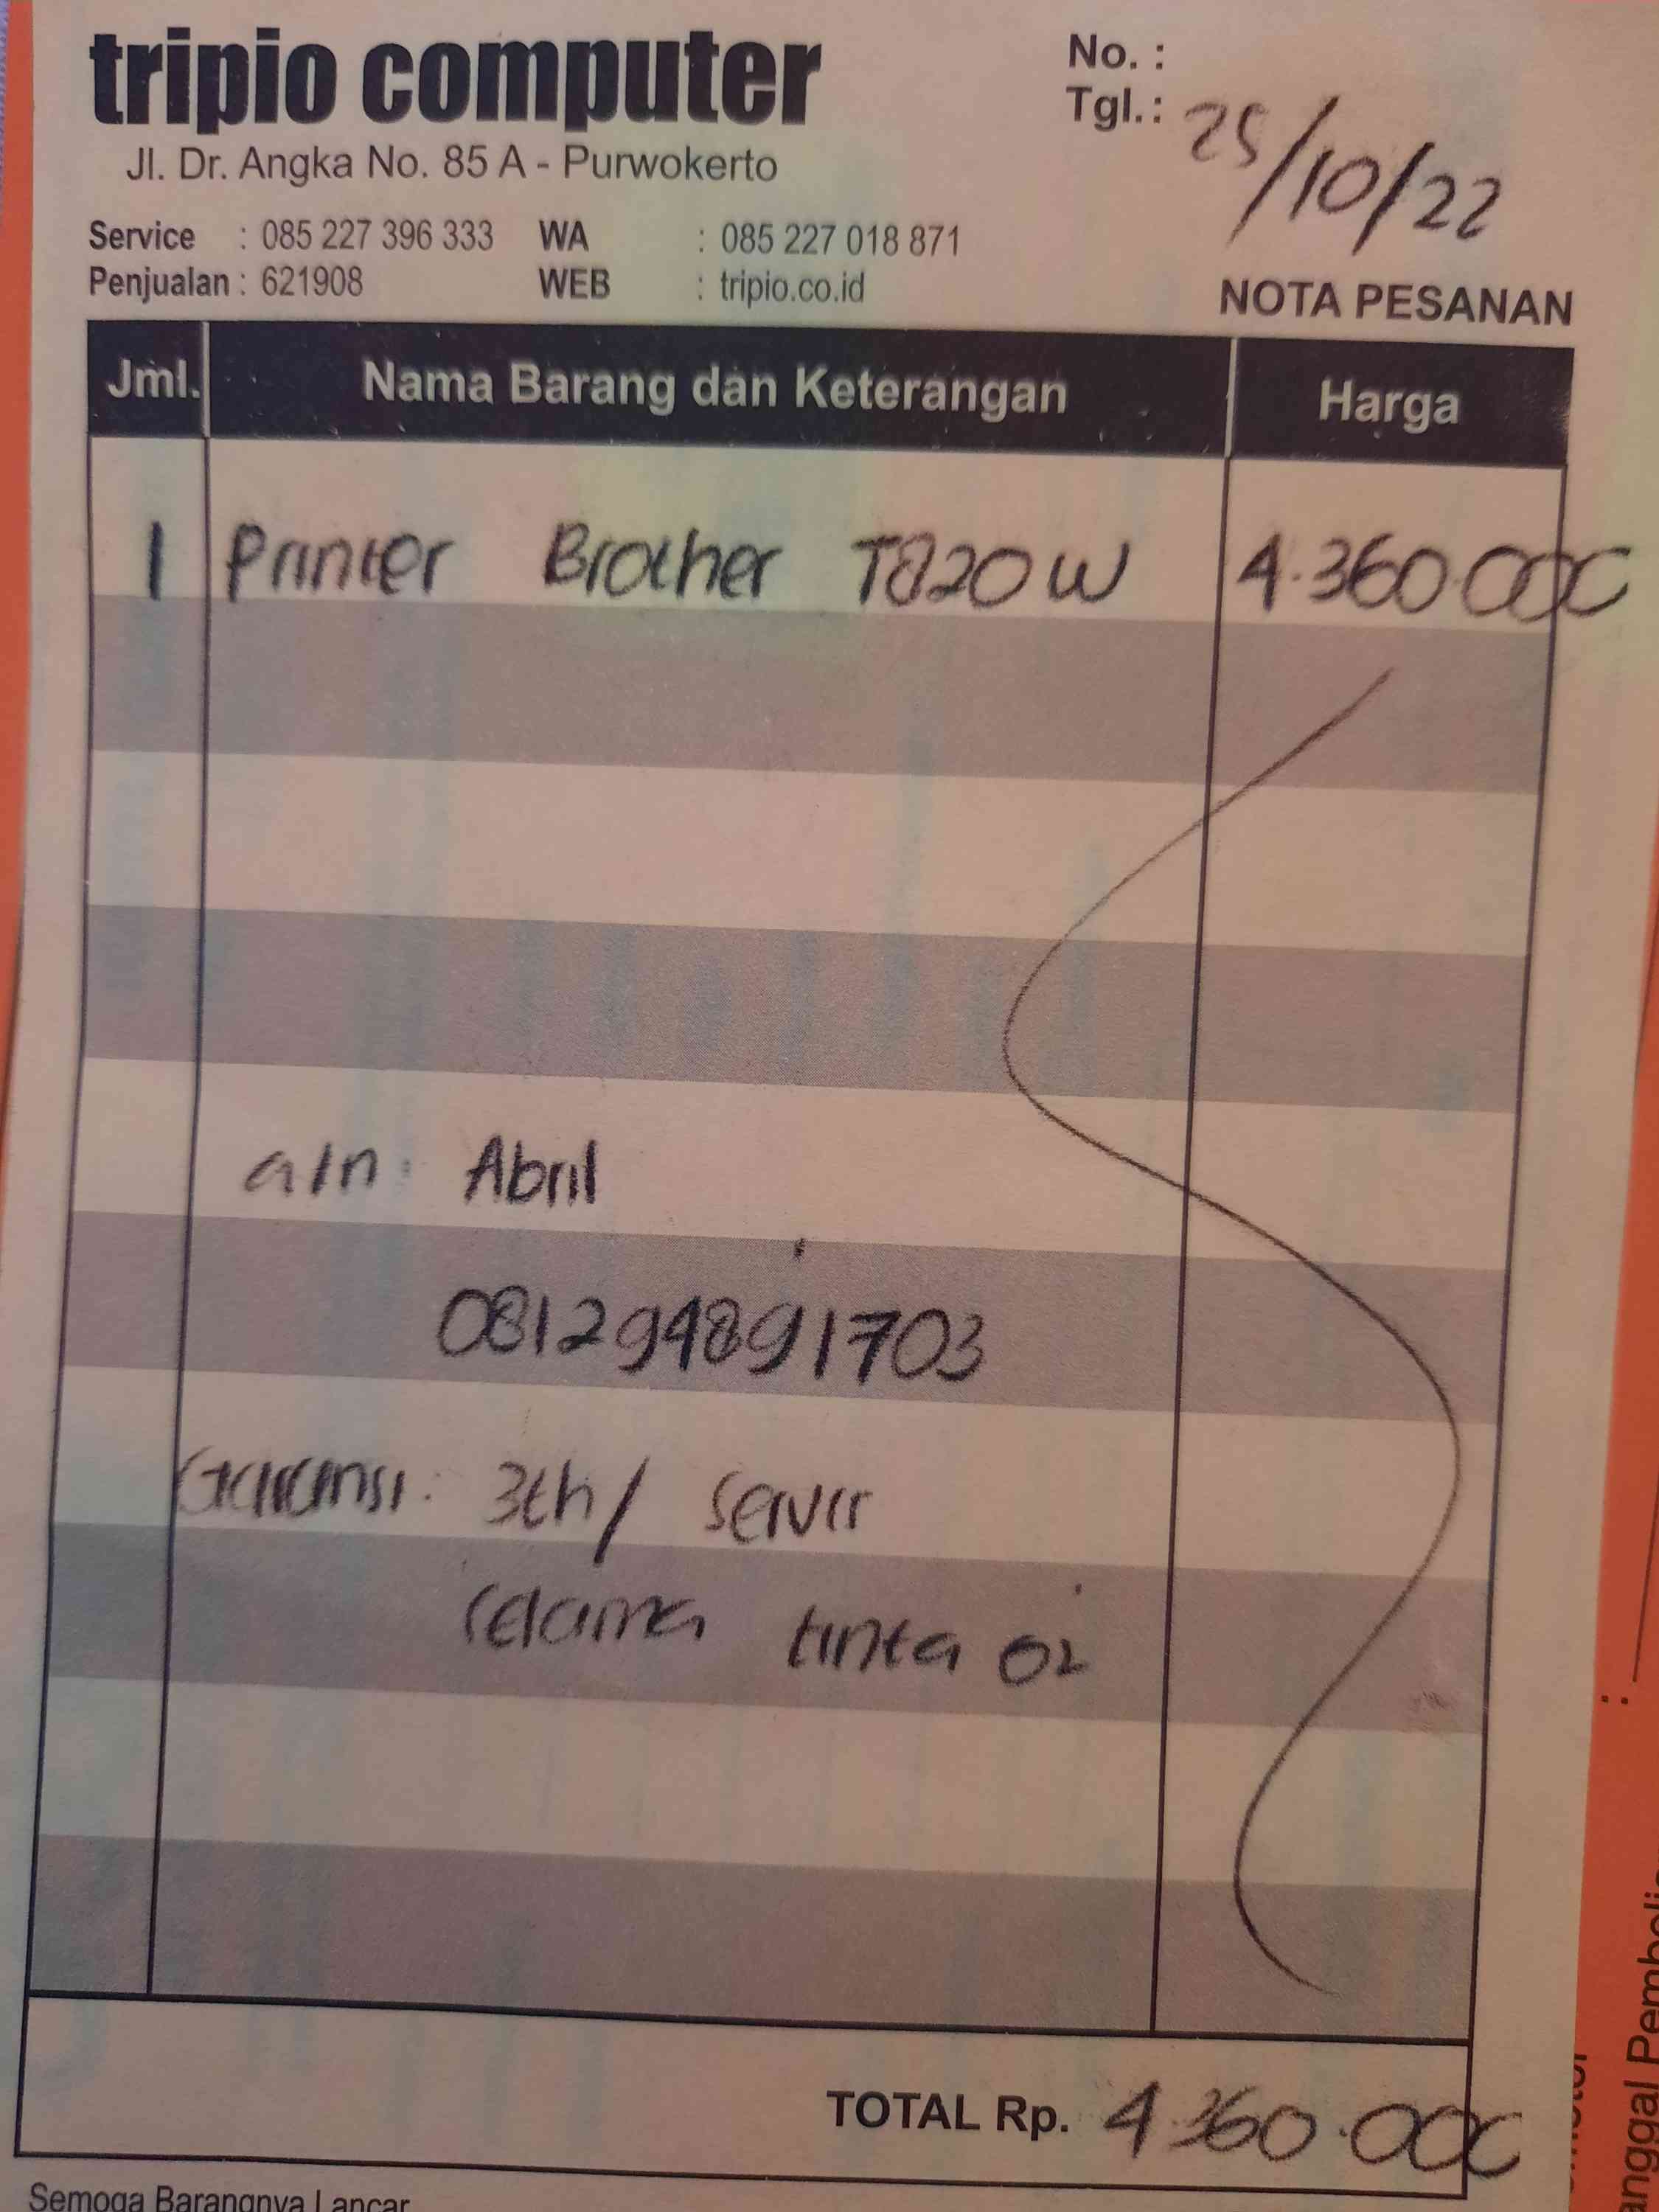 tripio computer
Jl. Dr. Angka No. 85 A - Purwokerto
No. :
Tgl. : 25/10/22
Service : 085 227 396 333 WA : 085 227 018 871
Penjualan : 621908 WEB : tripio.co.id
NOTA PESANAN
Jml. Nama Barang dan Keterangan Harga
1 Printer Brother T820W 4.360.000
a/n : Abril
081294891703
Garansi : 3th / servis
selama tinta ori
TOTAL Rp. 4.360.000
Semoga Barangnya Lancar
anggal Pembelia